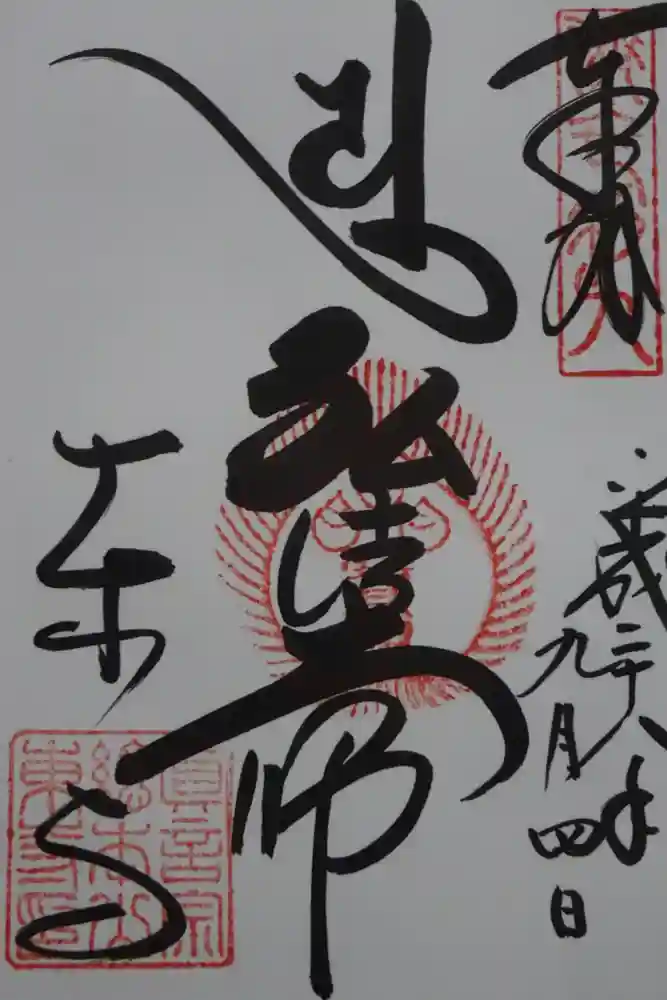 奉拝
平成二十八年
九月四日
弘法大師
東寺
真言宗
總本山
東寺印